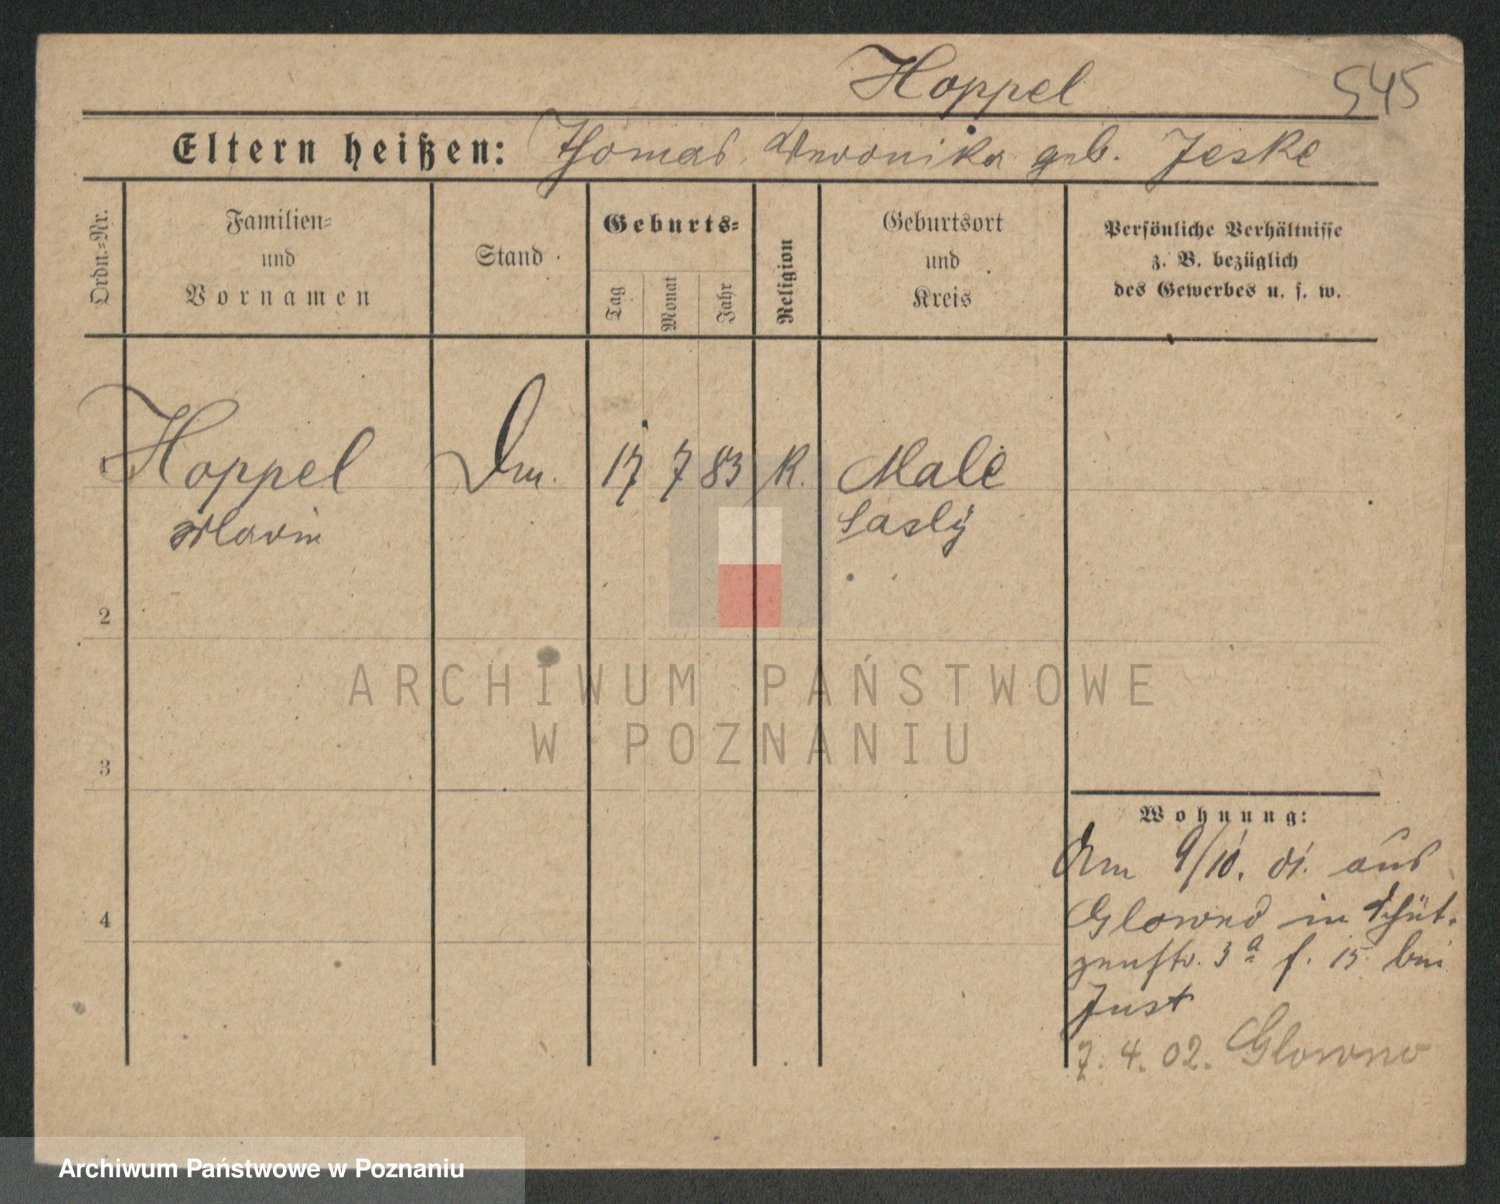 Hoppel 545
Eltern heißen: Thomas, Veronika geb. Jeske
Ordn.-Nr.
Familien-
und
Vornamen
Stand
Geburts-
Tag
Monat
Jahr
Religion
Geburtsort
und
Kreis
Persönliche Verhältnisse
z. B. bezüglich
des Gewerbes u. s. w.
1 Hoppel 17 7 83 K. Male
Marie
2
3
4
Wohnung:
Am 9/10. 01. aus
Glowno in Schüt-
zenstr. 3a f. 15 bei
Just
7. 4. 02. Glowno
ARCHIWUM PAŃSTWOWE
W POZNANIU
Archiwum Państwowe w Poznaniu